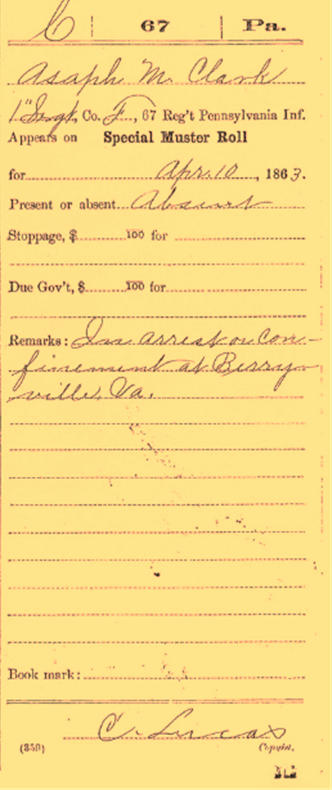 C | 67 | Pa.
Asaph M. Clark
1" Sergt, Co. F, 67 Reg't Pennsylvania Inf.
Appears on Special Muster Roll
for Apr. 10, 1863.
Present or absent Absent
Stoppage, $ 100 for
Due Gov't, $ 100 for
Remarks: In arrest or con-
finement at Berry-
ville, Va.
Book mark:
C. Lucas
(359) Copyist.